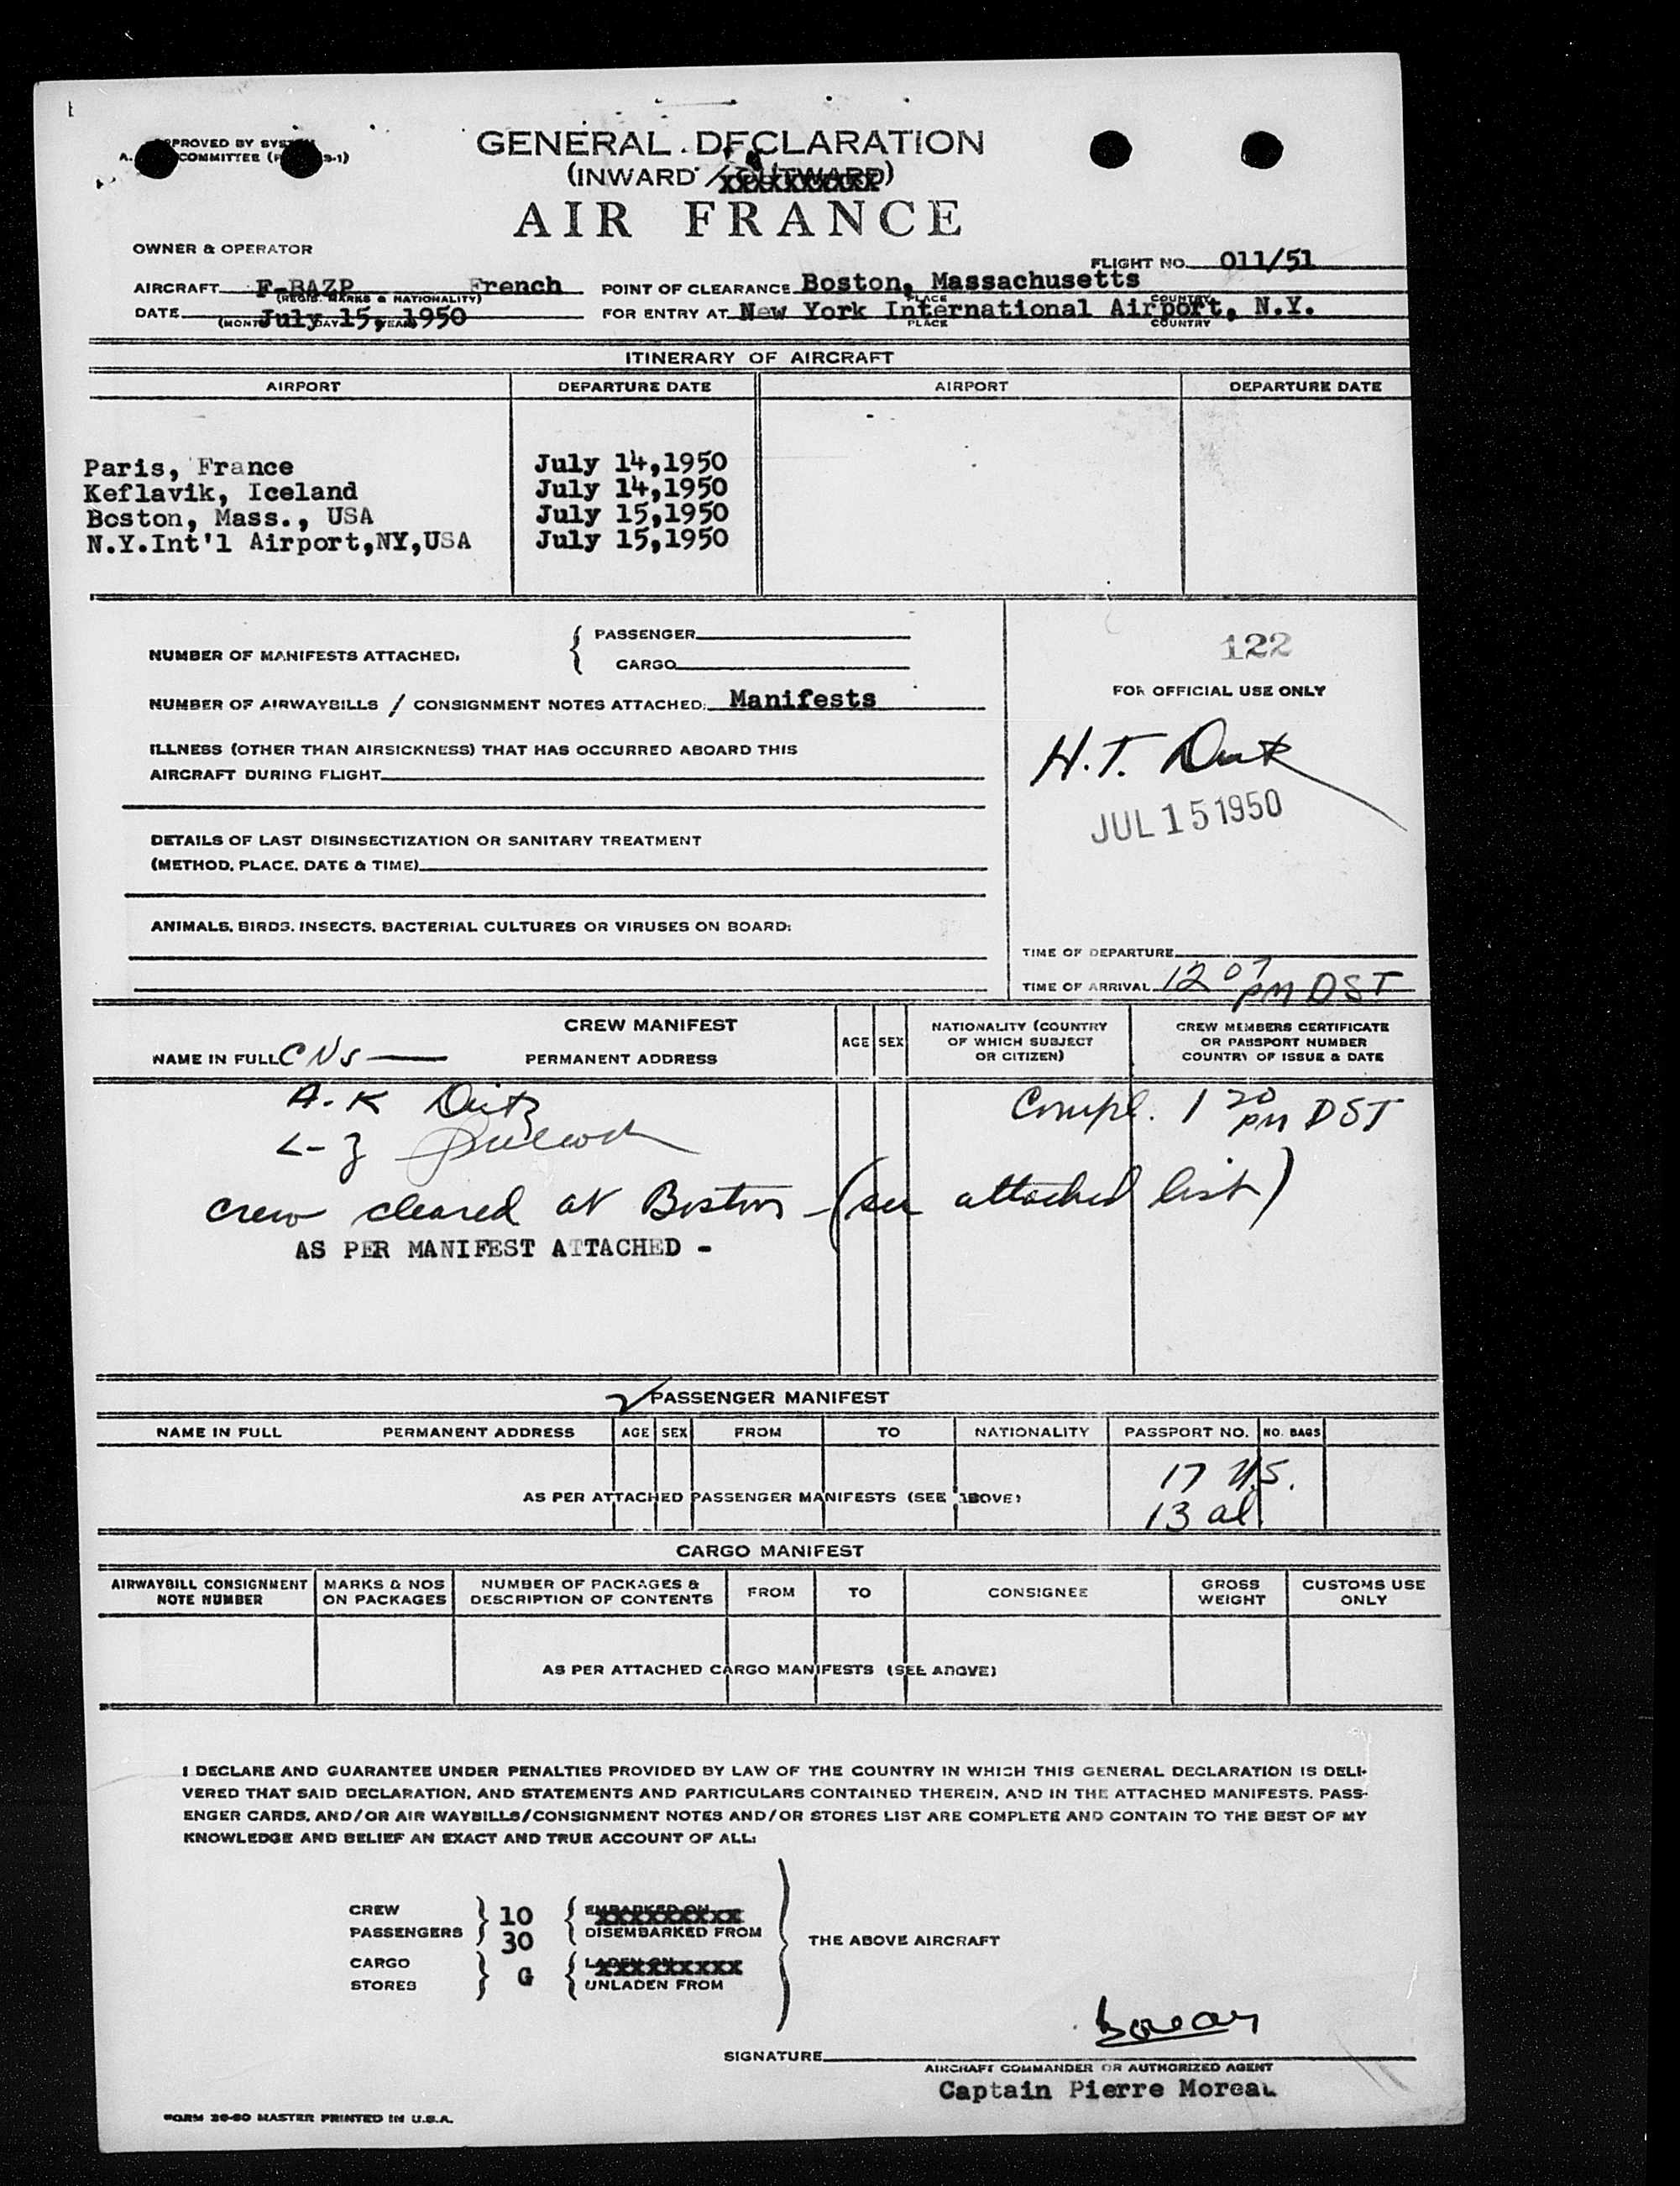 GENERAL DECLARATION
(INWARD / OUTWARD)
AIR FRANCE
OWNER & OPERATOR
FLIGHT NO. 011/51
AIRCRAFT F-BAZP French
(REGIS. MARKS & NATIONALITY)
POINT OF CLEARANCE Boston, Massachusetts
PLACE COUNTRY
DATE July 15, 1950
(MONTH DAY YEAR)
FOR ENTRY AT New York International Airport, N.Y.
PLACE COUNTRY
ITINERARY OF AIRCRAFT
AIRPORT DEPARTURE DATE AIRPORT DEPARTURE DATE
Paris, France July 14,1950
Keflavik, Iceland July 14,1950
Boston, Mass., USA July 15,1950
N.Y.Int'l Airport,NY,USA July 15,1950
NUMBER OF MANIFESTS ATTACHED:
PASSENGER
CARGO
122
FOR OFFICIAL USE ONLY
NUMBER OF AIRWAYBILLS / CONSIGNMENT NOTES ATTACHED: Manifests
ILLNESS (OTHER THAN AIRSICKNESS) THAT HAS OCCURRED ABOARD THIS
AIRCRAFT DURING FLIGHT
H.T.
JUL 15 1950
DETAILS OF LAST DISINSECTIZATION OR SANITARY TREATMENT
(METHOD, PLACE, DATE & TIME)
ANIMALS, BIRDS, INSECTS, BACTERIAL CULTURES OR VIRUSES ON BOARD:
TIME OF DEPARTURE
TIME OF ARRIVAL 12 07 PM DST
CREW MANIFEST
NAME IN FULL CNS PERMANENT ADDRESS
AGE SEX
NATIONALITY (COUNTRY
OF WHICH SUBJECT
OR CITIZEN)
CREW MEMBERS CERTIFICATE
OR PASSPORT NUMBER
COUNTRY OF ISSUE & DATE
A. K
Compl. 1 20 PM DST
crew cleared at Boston - (see attached list)
AS PER MANIFEST ATTACHED -
PASSENGER MANIFEST
NAME IN FULL PERMANENT ADDRESS AGE SEX FROM TO NATIONALITY PASSPORT NO. NO. BAGS
17 U.S.
AS PER ATTACHED PASSENGER MANIFESTS (SEE ABOVE)
13 al.
CARGO MANIFEST
AIRWAYBILL CONSIGNMENT
NOTE NUMBER
MARKS & NOS
ON PACKAGES
NUMBER OF PACKAGES &
DESCRIPTION OF CONTENTS
FROM TO CONSIGNEE
GROSS
WEIGHT
CUSTOMS USE
ONLY
AS PER ATTACHED CARGO MANIFESTS (SEE ABOVE)
I DECLARE AND GUARANTEE UNDER PENALTIES PROVIDED BY LAW OF THE COUNTRY IN WHICH THIS GENERAL DECLARATION IS DELI-
VERED THAT SAID DECLARATION, AND STATEMENTS AND PARTICULARS CONTAINED THEREIN, AND IN THE ATTACHED MANIFESTS, PASS-
ENGER CARDS, AND/OR AIR WAYBILLS/CONSIGNMENT NOTES AND/OR STORES LIST ARE COMPLETE AND CONTAIN TO THE BEST OF MY
KNOWLEDGE AND BELIEF AN EXACT AND TRUE ACCOUNT OF ALL:
CREW 10 EMBARKED ON
PASSENGERS 30 DISEMBARKED FROM
THE ABOVE AIRCRAFT
CARGO G LADEN ON
STORES UNLADEN FROM
SIGNATURE
AIRCRAFT COMMANDER OR AUTHORIZED AGENT
Captain Pierre Moreau
FORM 20-80 MASTER PRINTED IN U.S.A.